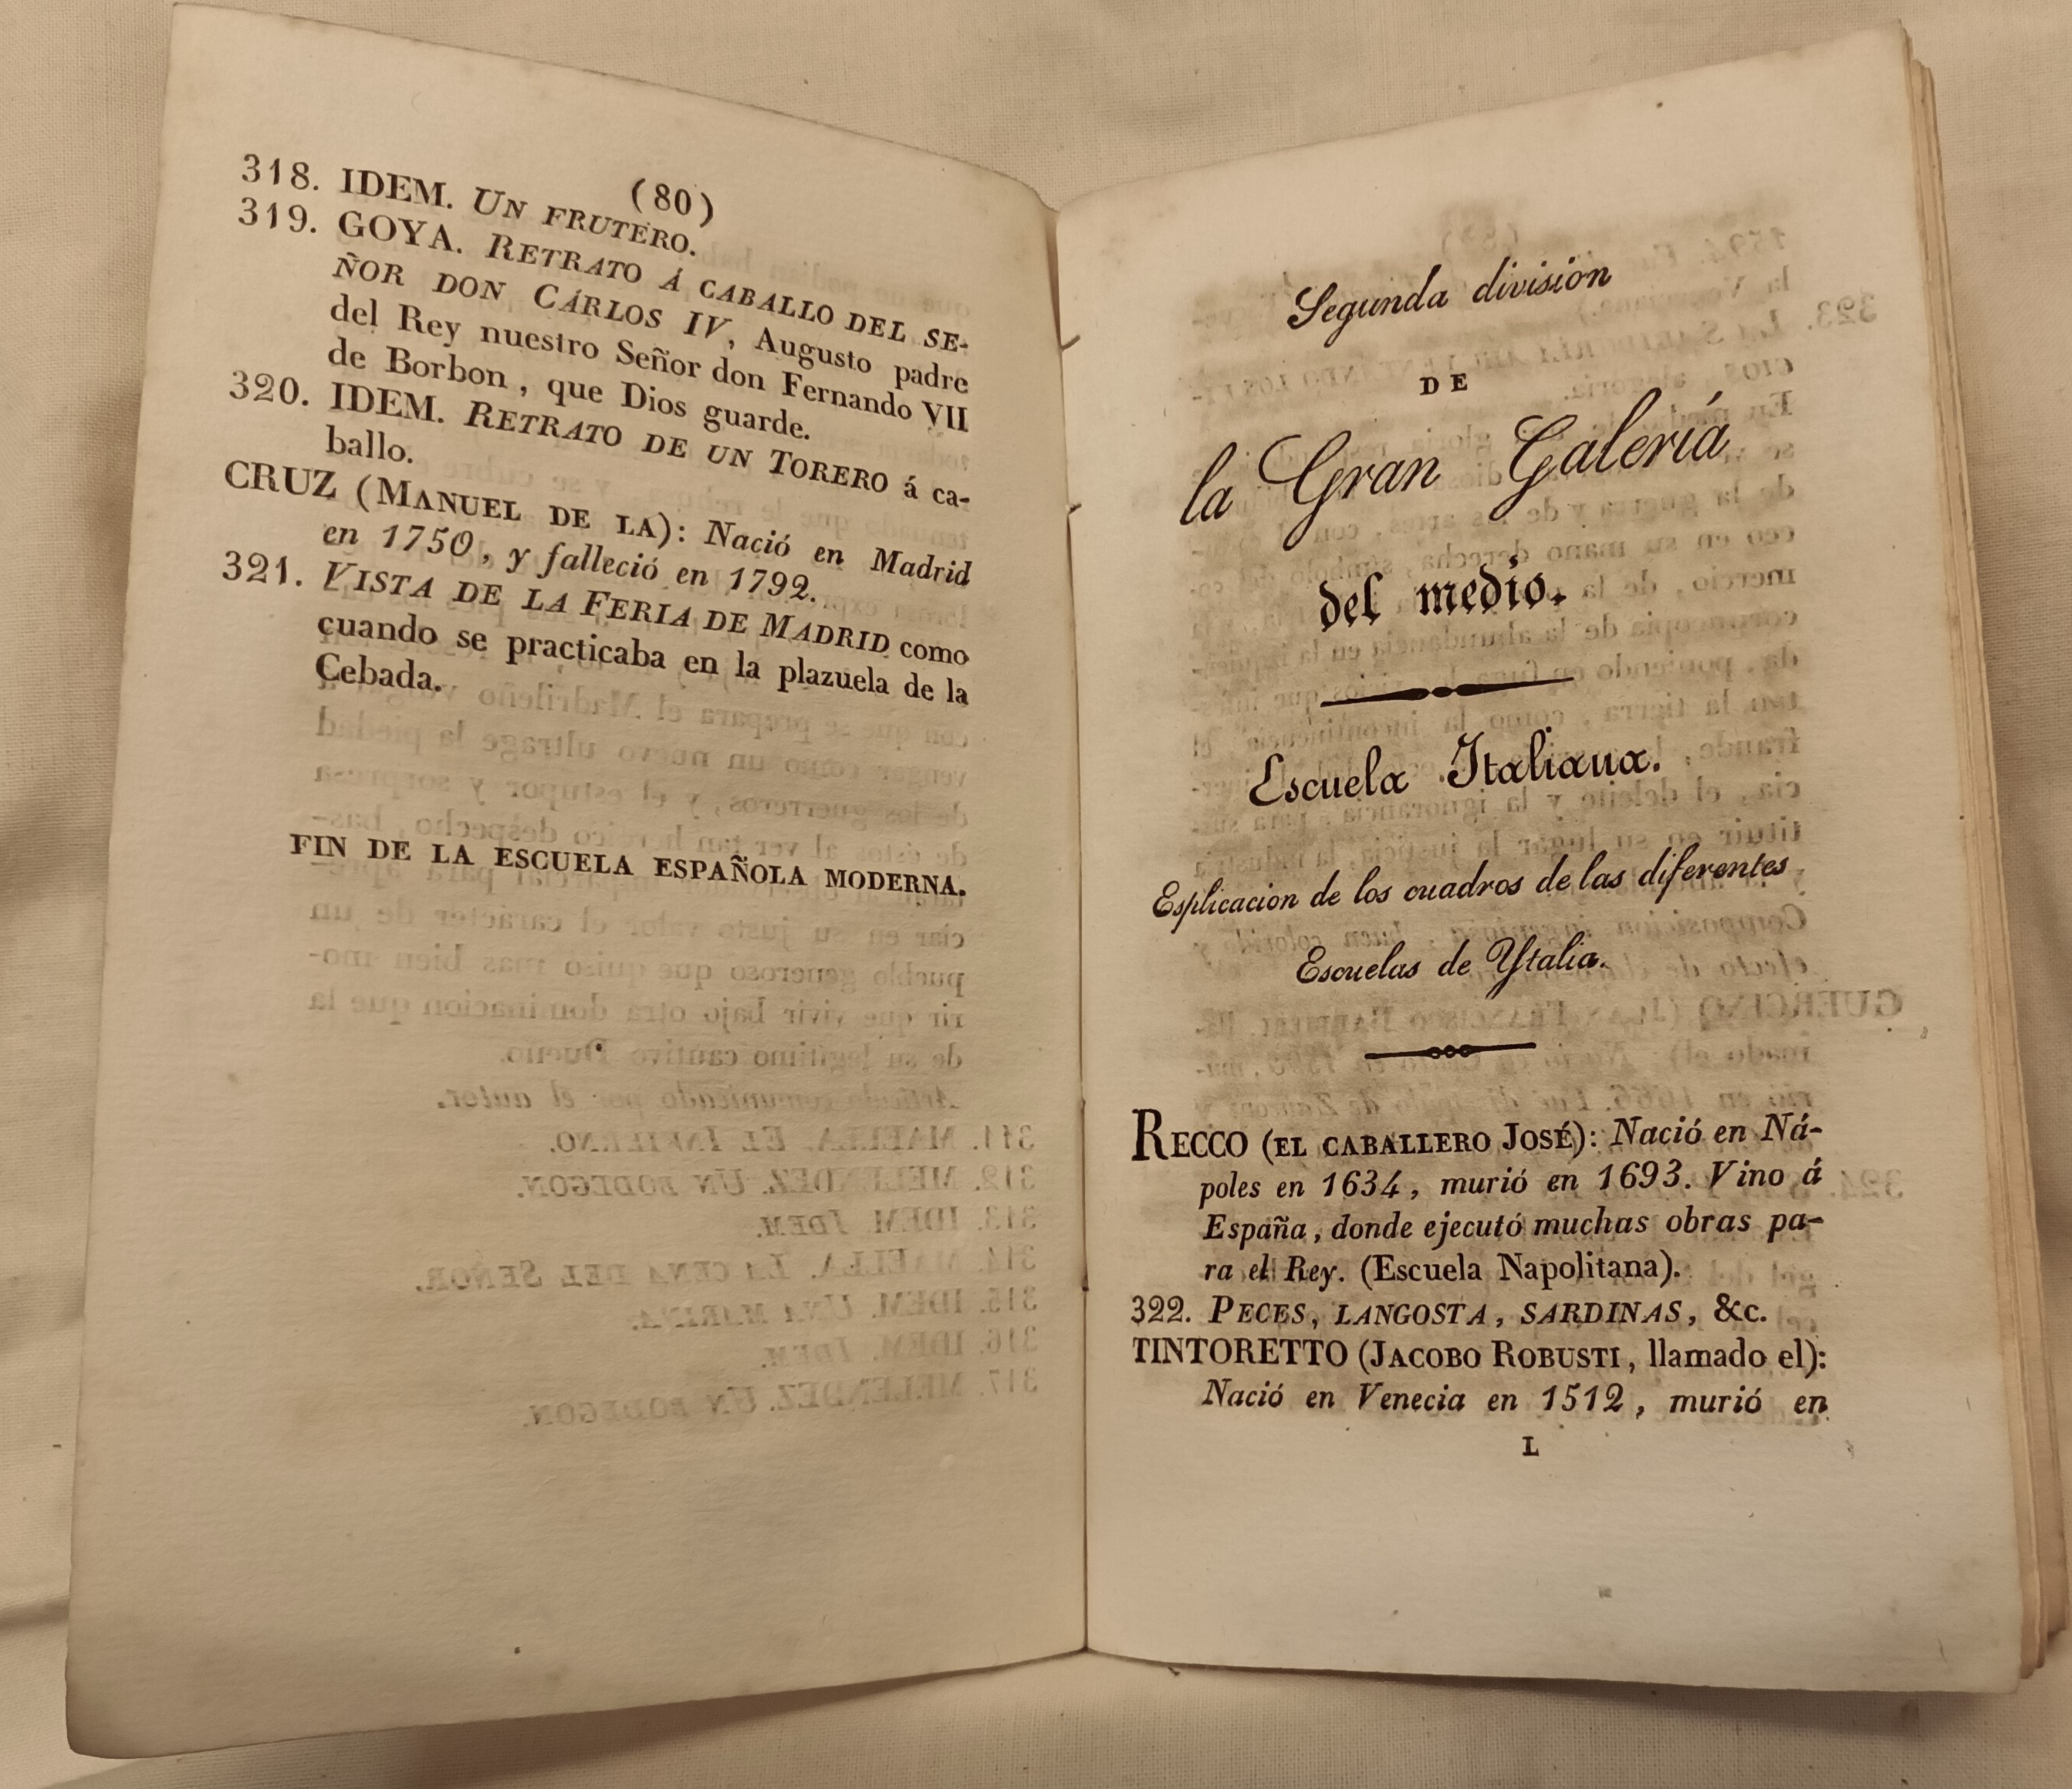 (80)
318. IDEM. UN FRUTERO.
319. GOYA. RETRATO Á CABALLO DEL SE-
ÑOR DON CÁRLOS IV, Augusto padre
del Rey nuestro Señor don Fernando VII
de Borbon, que Dios guarde.
320. IDEM. RETRATO DE UN TORERO á ca-
ballo.
CRUZ (MANUEL DE LA): Nació en Madrid
en 1750, y falleció en 1792.
321. VISTA DE LA FERIA DE MADRID como
cuando se practicaba en la plazuela de la
Cebada.
FIN DE LA ESCUELA ESPAÑOLA MODERNA.
Segunda division
DE
la Gran Galería
del medio.
Escuela Italiana.
Esplicacion de los cuadros de las diferentes
Escuelas de Ytalia.
RECCO (EL CABALLERO JOSÉ): Nació en Ná-
poles en 1634, murió en 1693. Vino á
España, donde ejecutó muchas obras pa-
ra el Rey. (Escuela Napolitana).
322. PECES, LANGOSTA, SARDINAS, &c.
TINTORETTO (JACOBO ROBUSTI, llamado el):
Nació en Venecia en 1512, murió en
L